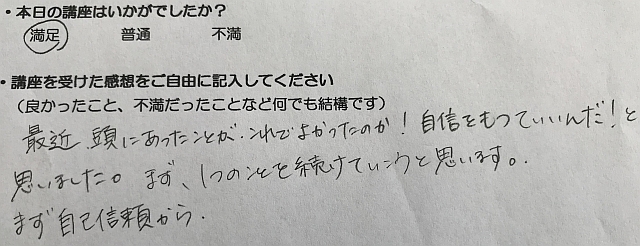 ・本日の講座はいかがでしたか？
満足 普通 不満
・講座を受けた感想をご自由に記入してください
（良かったこと、不満だったことなど何でも結構です）
最近、頭にあったことが、これでよかったのか！自信をもっていいんだ！と
思いました。まず、1つのことを続けていこうと思います。
まず自己信頼から.